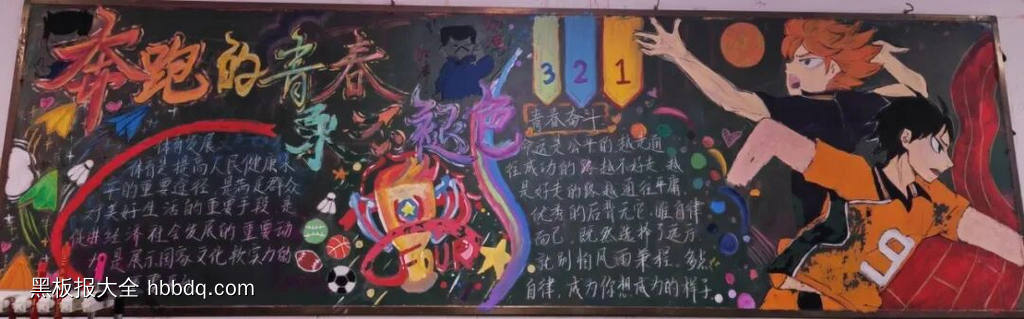 奔跑的青春
永不褪色
3 2 1
体育发展
体育是提高人民健康水
平的重要途径,是满足群众
对美好生活的重要手段,是
促进经济社会发展的重要动
力,是展示国家文化软实力的
青春奋斗
远是公平的,越是通
往成功的路越不好走,越
是好走的路越通往平庸,
优秀的后背无它,唯自律
而已,既然选择了远方,
就别怕风雨兼程,多些
自律,成为你想成为的样子。
10
黑板报大全 hbbdq.com